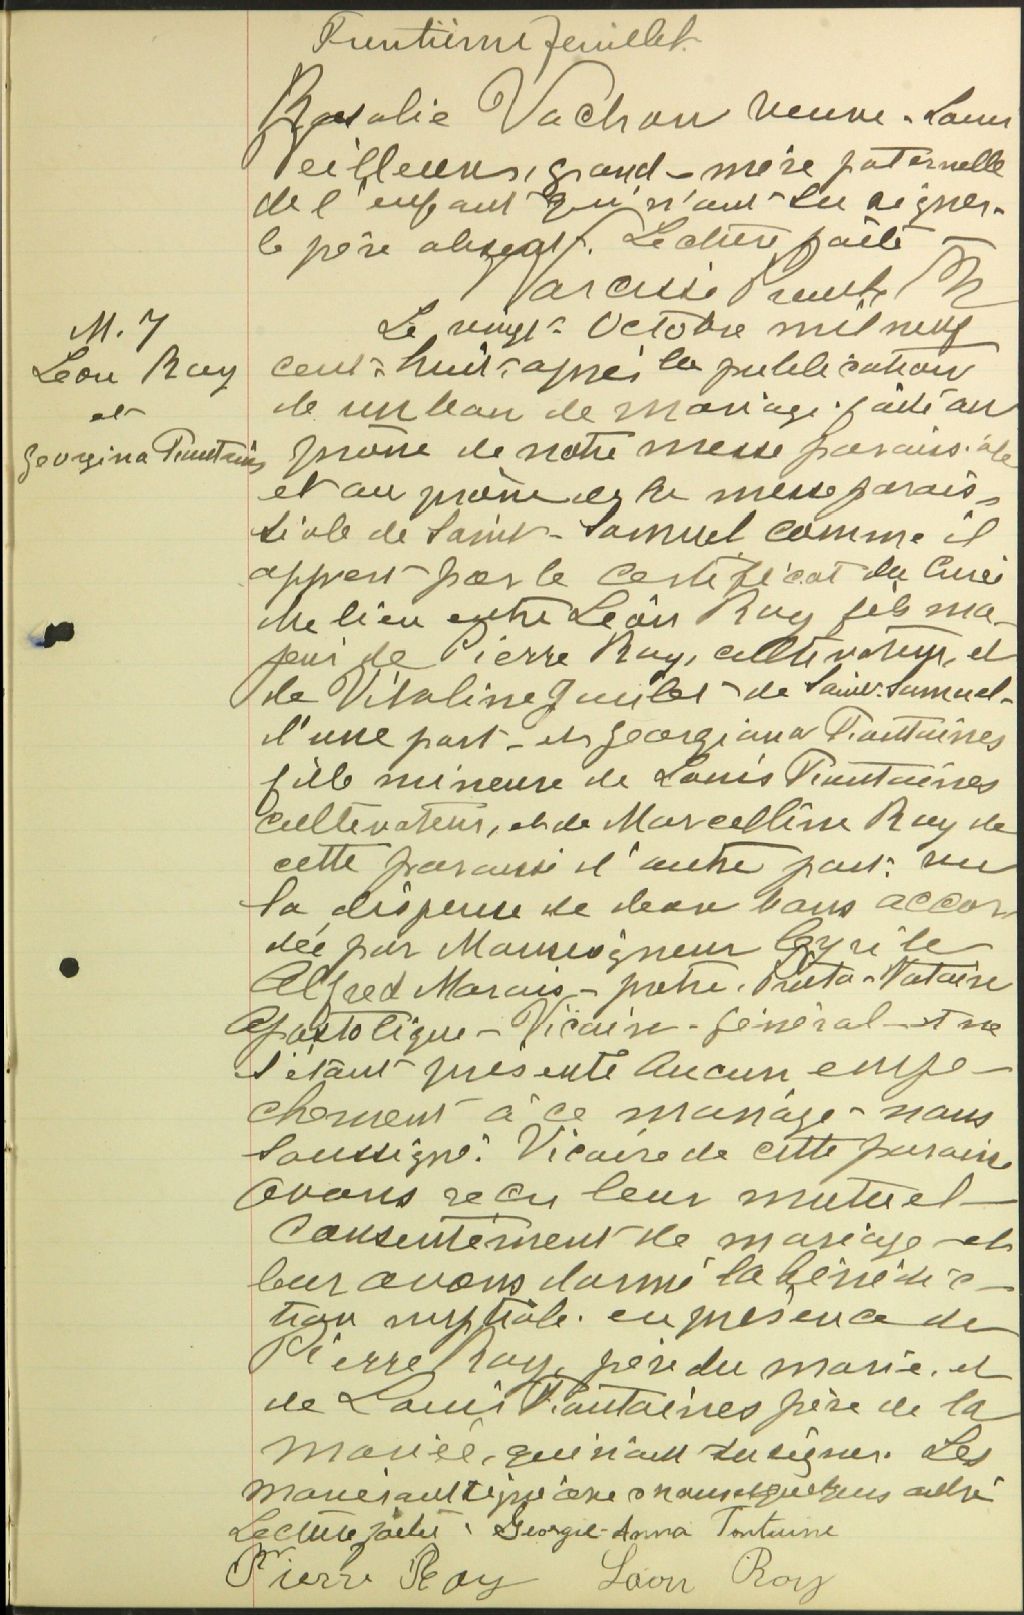 Trentième feuillet
Rosalie Vachon veuve Louis
Veilleux, grand-mère paternelle
de l'enfant qui n'ont su signer.
le père absent. Lecture faite
Narcisse Proulx Ptre
M. 7
Léon Roy
et
Georgina Fontaines
Le vingt Octobre mil neuf
cent huit, après la publication
de un ban de mariage faite au
prône de notre messe paroissiale
et au prône de la messe parois-
siale de Saint-Samuel comme il
appert par le certificat du Curé
du lieu entre Léon Roy fils ma-
jeur de Pierre Roy, cultivateur, et
de Vitaline de Saint-Samuel
d'une part, et Georgiana Fontaines
fille mineure de Louis Fontaines
cultivateur, et de Marcelline Roy de
cette paroisse d'autre part: vu
la dispense de deux bans accor-
dée par Monseigneur Cyrile
Alfred Marois - prêtre, Proto-Notaire
Apostolique - Vicaire-général - et ne
s'étant présenté aucun empê-
chement à ce mariage - nous
soussigné, Vicaire de cette paroisse
avons reçu leur mutuel
consentement de mariage et
leur avons donné la bénédic-
tion nuptiale en présence de
Pierre Roy, père du marié, et
de Louis Fontaines père de la
mariée, qui n'ont su signer. Les
mariés ont signé avec nous
Lecture faite. Georgie-Anna Fontaine
Pierre Roy Léon Roy